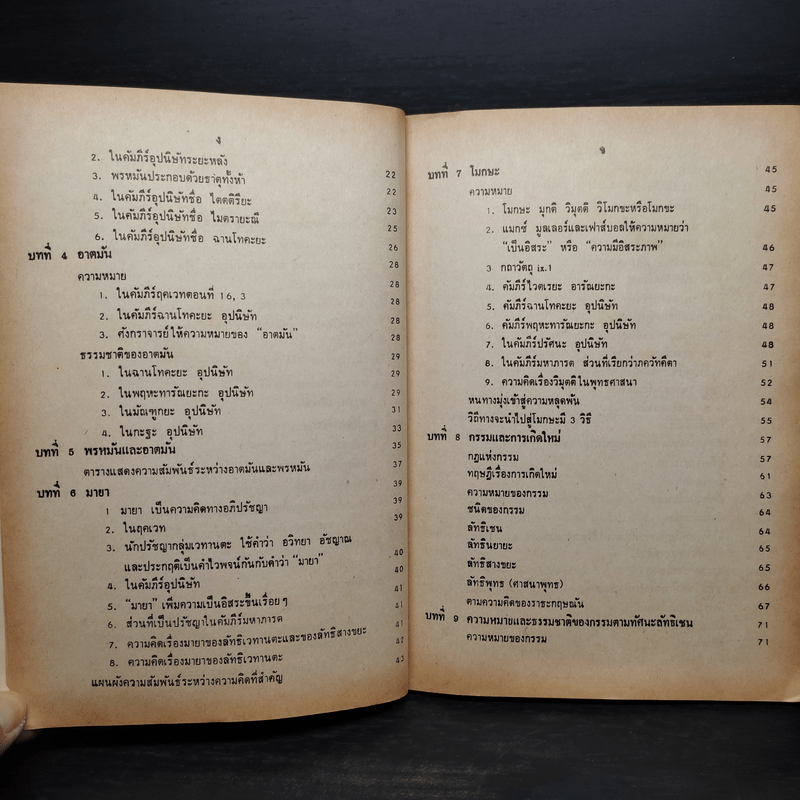 ง
2. ในคัมภีร์อุปนิษัทระยะหลัง 22
3. พรหมันประกอบด้วยธาตุทั้งห้า 22
4. ในคัมภีร์อุปนิษัทชื่อ ไตตติรียะ 23
5. ในคัมภีร์อุปนิษัทชื่อ ไมตรายะณี 25
6. ในคัมภีร์อุปนิษัทชื่อ ฉานโทคะยะ 26
บทที่ 4 อาตมัน 28
ความหมาย 28
1. ในคัมภีร์ฤคเวทตอนที่ 16, 3 28
2. ในคัมภีร์ฉานโทคะยะ อุปนิษัท 28
3. ศังกราจารย์ให้ความหมายของ “อาตมัน” 28
ธรรมชาติของอาตมัน 29
1. ในฉานโทคะยะ อุปนิษัท 29
2. ในพฤหะทารัณยะกะ อุปนิษัท 29
3. ในมัณฑูกยะ อุปนิษัท 31
4. ในกะฐะ อุปนิษัท 33
บทที่ 5 พรหมันและอาตมัน 35
ตารางแสดงความสัมพันธ์ระหว่างอาตมันและพรหมัน 37
บทที่ 6 มายา 39
1 มายา เป็นความคิดทางอภิปรัชญา 39
2. ในฤคเวท 39
3. นักปรัชญากลุ่มเวทานตะ ใช้คำว่า อวิทยา อัชญาณ
และประกฤติเป็นคำไวพจน์กันกับคำว่า “มายา” 40
4. ในคัมภีร์อุปนิษัท 40
5. “มายา” เพิ่มความเป็นอิสระขึ้นเรื่อยๆ 41
6. ส่วนที่เป็นปรัชญาในคัมภีร์มหาภารต 41
7. ความคิดเรื่องมายาของลัทธิเวทานตะและของลัทธิสางขยะ 41
8. ความคิดเรื่องมายาของลัทธิเวทานตะ 42
แผนผังความสัมพันธ์ระหว่างความคิดที่สำคัญ 43
จ
บทที่ 7 โมกษะ 45
ความหมาย 45
1. โมกษะ มุกติ วิมุตติ วิโมกขะหรือโมกขะ 45
2. แมกซ์ มูลเลอร์และเฟาส์บอลให้ความหมายว่า
“เป็นอิสระ” หรือ “ความมีอิสระภาพ” 46
3 กถาวัตถุ ix.1 47
4. คัมภีร์ไวตเรยะ อารัณยะกะ 47
5. คัมภีร์ฉานโทคะยะ อุปนิษัท 48
6. คัมภีร์พฤหะทารัณยะกะ อุปนิษัท 48
7. ในคัมภีร์ปรัศนะ อุปนิษัท 48
8. ในคัมภีร์มหาภารต ส่วนที่เรียกว่าภควัทคีตา 51
9. ความคิดเรื่องวิมุตติในพุทธศาสนา 52
หนทางมุ่งเข้าสู่ความหลุดพ้น 54
วิถีทางจะนำไปสู่โมกษะมี 3 วิธี 55
บทที่ 8 กรรมและการเกิดใหม่ 57
กฎแห่งกรรม 57
ทฤษฎีเรื่องการเกิดใหม่ 61
ความหมายของกรรม 63
ชนิดของกรรม 64
ลัทธิเชน 64
ลัทธินยายะ 65
ลัทธิสางขยะ 65
ลัทธิพุทธ (ศาสนาพุทธ) 66
ตามความคิดของราธะกฤษณัน 67
บทที่ 9 ความหมายและธรรมชาติของกรรมตามทัศนะลัทธิเชน 71
ความหมายของกรรม 71